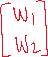 [W1
W2]